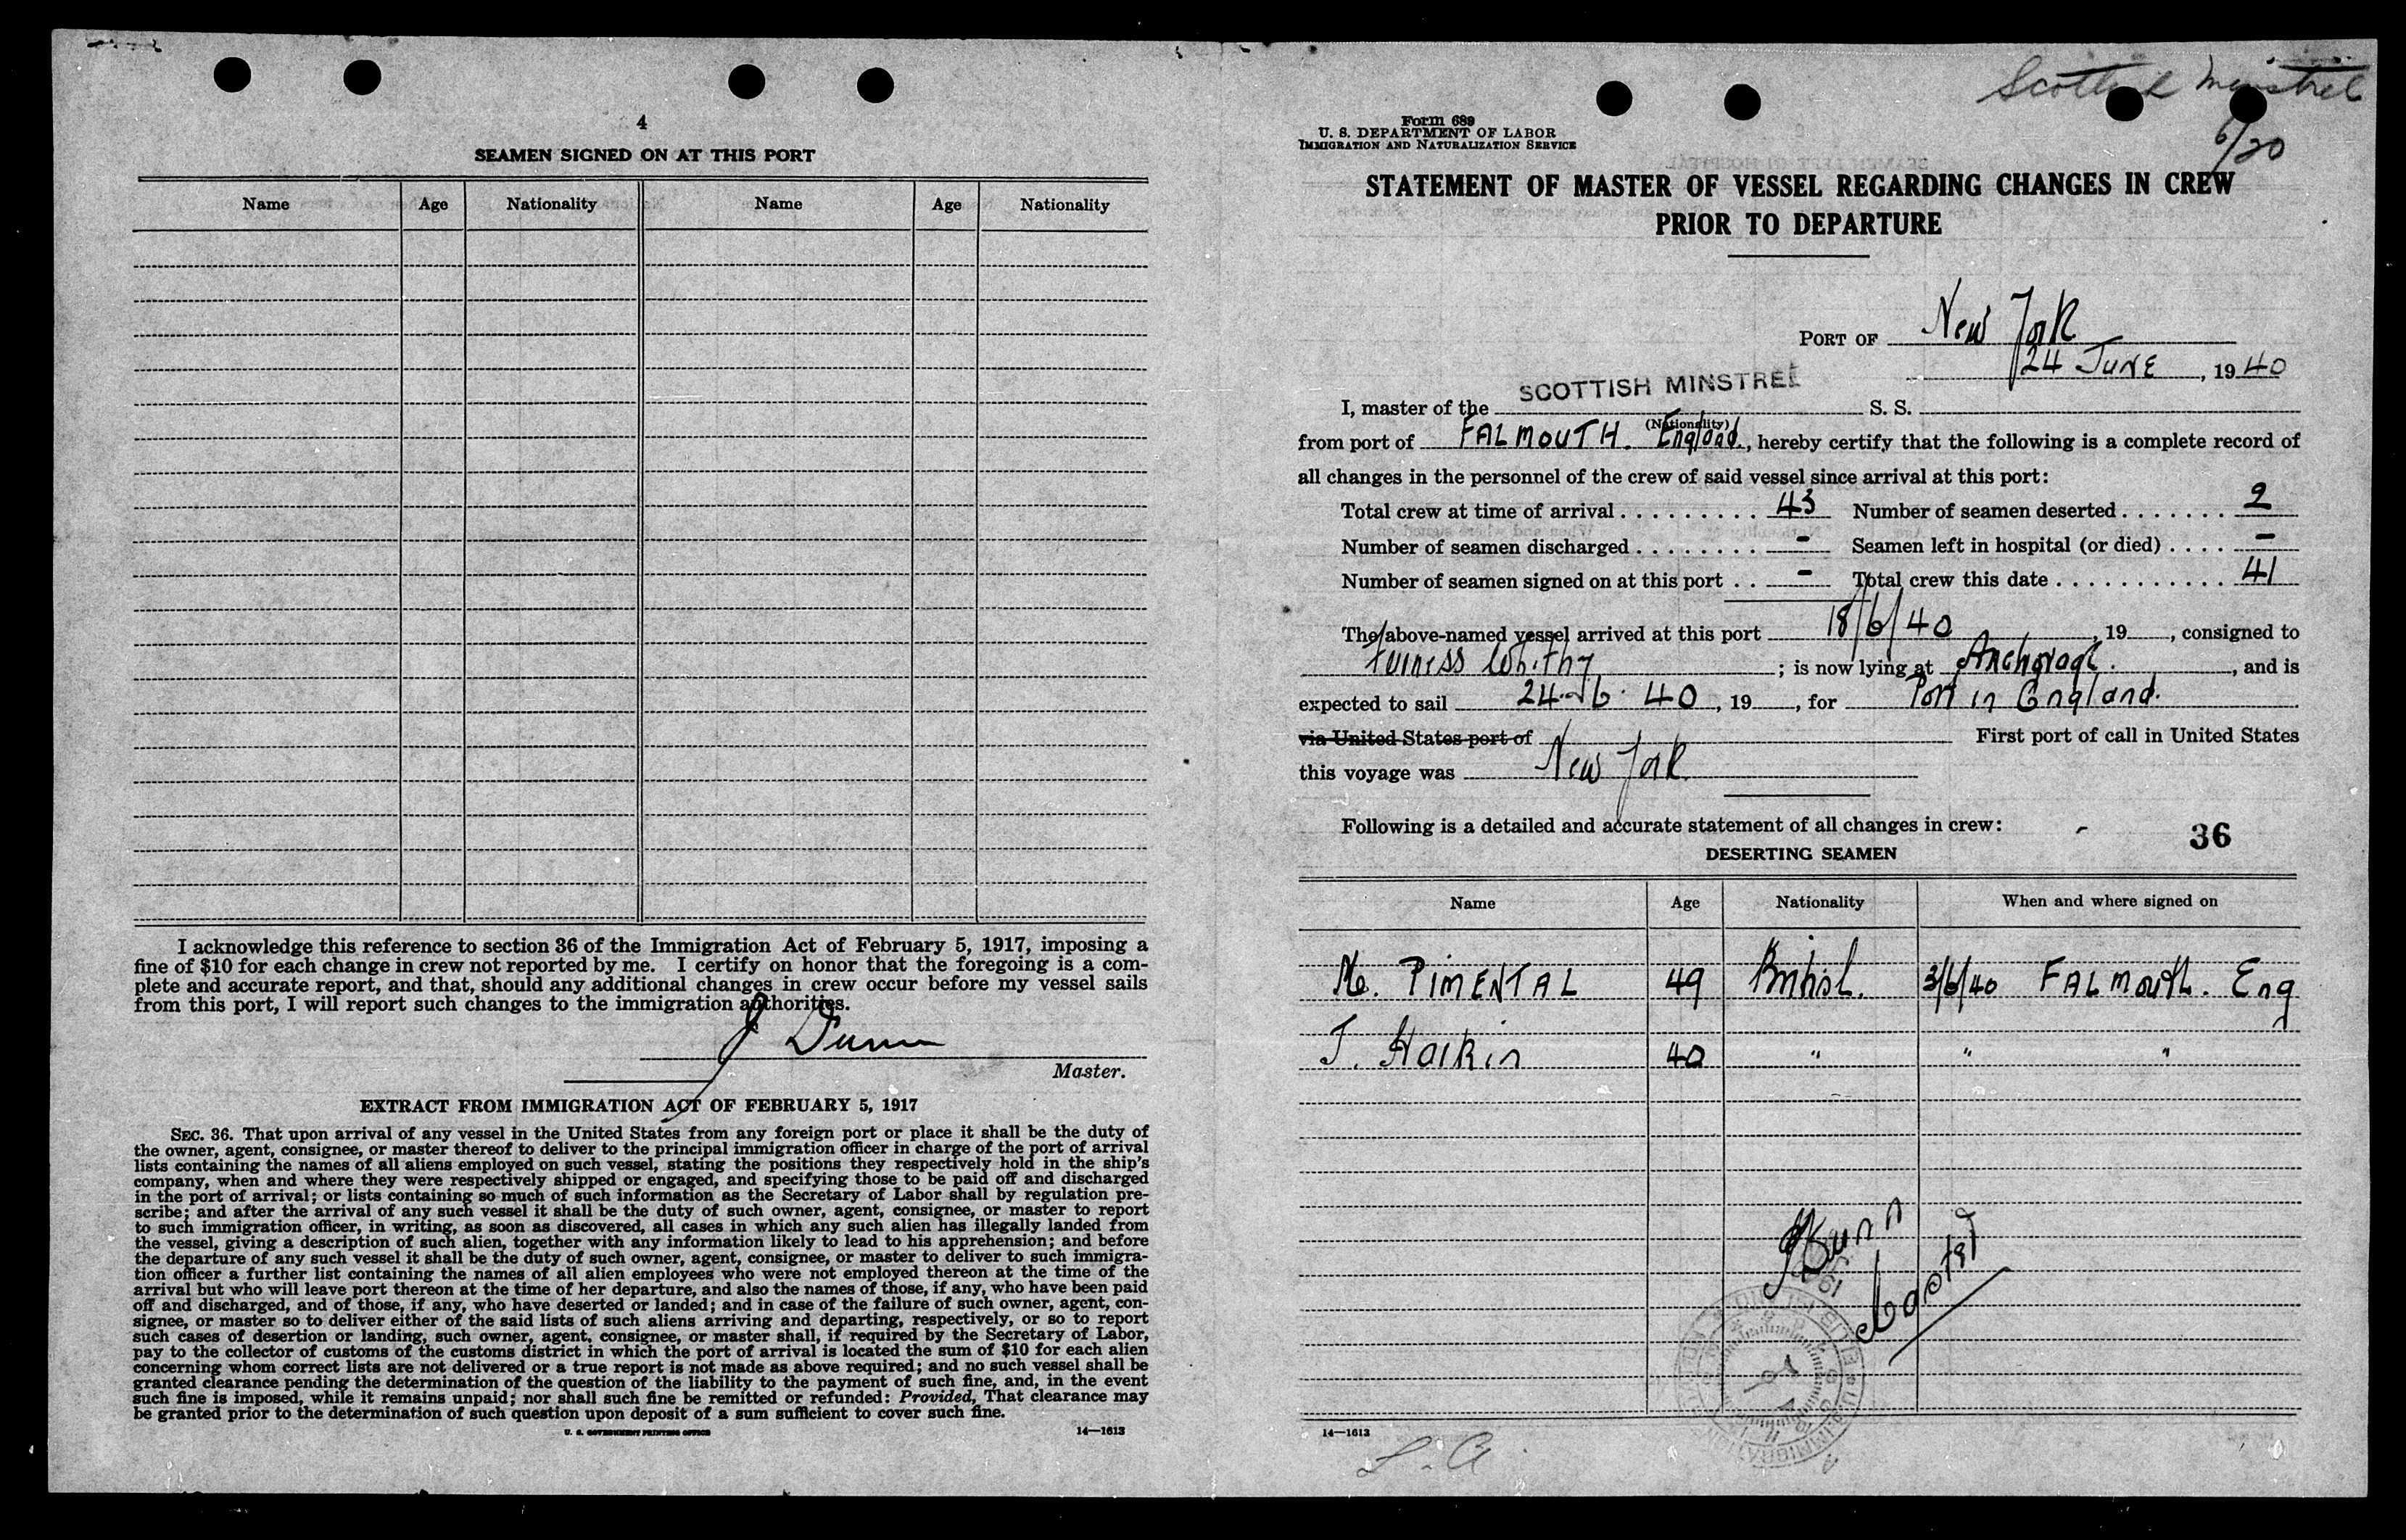 4
SEAMEN SIGNED ON AT THIS PORT
Name Age Nationality Name Age Nationality
I acknowledge this reference to section 36 of the Immigration Act of February 5, 1917, imposing a
fine of $10 for each change in crew not reported by me. I certify on honor that the foregoing is a com-
plete and accurate report, and that, should any additional changes in crew occur before my vessel sails
from this port, I will report such changes to the immigration authorities.
J Dunn
Master.
EXTRACT FROM IMMIGRATION ACT OF FEBRUARY 5, 1917
SEC. 36. That upon arrival of any vessel in the United States from any foreign port or place it shall be the duty of
the owner, agent, consignee, or master thereof to deliver to the principal immigration officer in charge of the port of arrival
lists containing the names of all aliens employed on such vessel, stating the positions they respectively hold in the ship's
company, when and where they were respectively shipped or engaged, and specifying those to be paid off and discharged
in the port of arrival; or lists containing so much of such information as the Secretary of Labor shall by regulation pre-
scribe; and after the arrival of any such vessel it shall be the duty of such owner, agent, consignee, or master to report
to such immigration officer, in writing, as soon as discovered, all cases in which any such alien has illegally landed from
the vessel, giving a description of such alien, together with any information likely to lead to his apprehension; and before
the departure of any such vessel it shall be the duty of such owner, agent, consignee, or master to deliver to such immigra-
tion officer a further list containing the names of all alien employees who were not employed thereon at the time of the
arrival but who will leave port thereon at the time of her departure, and also the names of those, if any, who have been paid
off and discharged, and of those, if any, who have deserted or landed; and in case of the failure of such owner, agent, con-
signee, or master so to deliver either of the said lists of such aliens arriving and departing, respectively, or so to report
such cases of desertion or landing, such owner, agent, consignee, or master shall, if required by the Secretary of Labor,
pay to the collector of customs of the customs district in which the port of arrival is located the sum of $10 for each alien
concerning whom correct lists are not delivered or a true report is not made as above required; and no such vessel shall be
granted clearance pending the determination of the question of the liability to the payment of such fine, and, in the event
such fine is imposed, while it remains unpaid; nor shall such fine be remitted or refunded: Provided, That clearance may
be granted prior to the determination of such question upon deposit of a sum sufficient to cover such fine.
U. S. GOVERNMENT PRINTING OFFICE 14—1613
Scottish Minstrel
6/20
Form 689
U. S. DEPARTMENT OF LABOR
IMMIGRATION AND NATURALIZATION SERVICE
STATEMENT OF MASTER OF VESSEL REGARDING CHANGES IN CREW
PRIOR TO DEPARTURE
PORT OF New York
24 JUNE, 1940
I, master of the SCOTTISH MINSTREL S. S.
(Nationality)
from port of FALMOUTH. England, hereby certify that the following is a complete record of
all changes in the personnel of the crew of said vessel since arrival at this port:
Total crew at time of arrival 43 Number of seamen deserted 2
Number of seamen discharged - Seamen left in hospital (or died) -
Number of seamen signed on at this port - Total crew this date 41
The above-named vessel arrived at this port 18/6/40, 19, consigned to
Furness Whithy; is now lying at Anchorage., and is
expected to sail 24.6.40, 19, for Port in England.
via United States port of First port of call in United States
this voyage was New York
Following is a detailed and accurate statement of all changes in crew: - 36
DESERTING SEAMEN
Name Age Nationality When and where signed on
M. PIMENTAL 49 British. 3/6/40 FALMOUTH. Eng
J. Harkin 40 " " "
J Dunn
14—1613